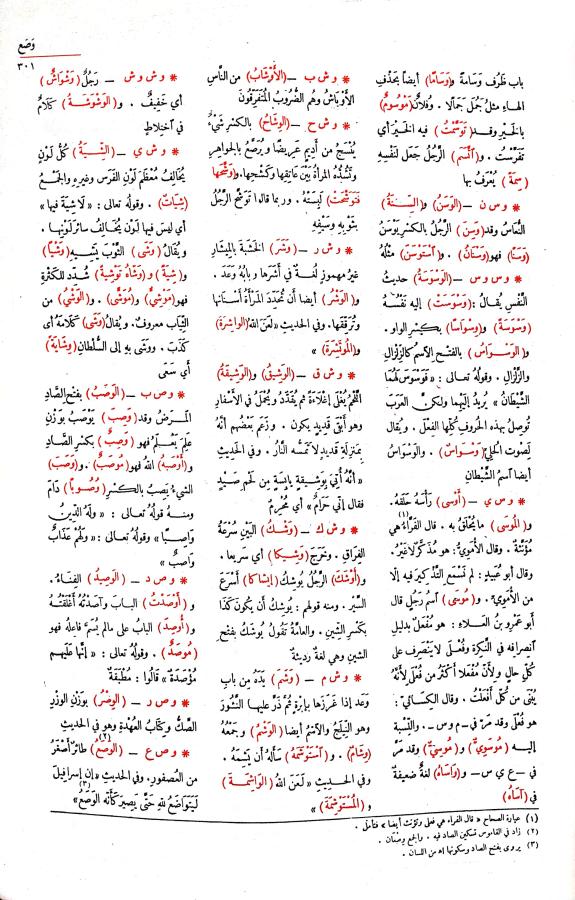 وَصَع
٣٠١
باب ظَرُف وَسَامةً و(وَسَامًا) أيضاً بحَذْفِ
الهاءِ مثلُ جَمُلَ جَمَالا . وفُلانٌ (مَوْسُومٌ)
بالخَيْرِ وقد (تَوَسَّمْتُ) فيه الخَيرَ أي
تَفَرَّسْتُ . و(اتَّسَمَ) الرَّجُلُ جَعلَ لنفسِهِ
(سِمَةً) يُعْرَفُ بها
* و س ن – (الوَسَنُ) و(السِّنَةُ)
النُّعَاسُ وقد (وَسِنَ) الرَّجُلُ بالكَسْرِ يَوْسَنُ
(وَسَنًا) فهو (وَسْنَانُ) . و(اسْتَوْسَنَ) مثْلُهُ
* و س و س – (الوَسْوَسَةُ) حديثُ
النَّفْسِ يُقالُ : (وَسْوَسَتْ) إليه نَفْسُهُ
(وَسْوَسَةً) و(وِسْوَاسًا) بكَسْرِ الواوِ .
و(الوَسْوَاسُ) بالفَتْحِ الاسْمُ كالزِّلْزَالِ
والزَّلْزَالِ . وقولُه تعالى : « فوَسْوَسَ لَهُمَا
الشَّيْطَانُ » يُرِيدُ إلَيْهِما ولٰكِنَّ العَرَبَ
تُوصِلُ بهذه الحُروفِ كُلِّها الفِعْلَ . ويُقالُ
لِصَوْتِ الحَلْيِ (وَسْوَاسٌ) . والوَسْوَاسُ
أيضا اسْمُ الشَّيْطانِ
* و س ي – (أَوْسَى) رَأْسَهُ حَلَقَهُ .
و(المُوسَى) ما يُحْلَقُ به . قال الفَرَّاءُ هي (١)
مُؤَنَّثَةٌ . وقال الأُمَوِيُّ : هو مُذَكَّرٌ لا غَيْرُ .
وقال أبو عُبَيدٍ : لم نَسْمَعِ التَّذْكيرَ فيه إلّا
من الأُمَوِيِّ . و(مُوسَى) اسْمُ رَجُلٍ قال
أبو عَمْرِو بنُ العَلاءِ : هو مُفْعَلٌ بدليلِ
انْصِرَافِه في النَّكِرَةِ وفُعْلَى لا يَنْصَرِفُ على
كلِّ حالٍ ولأنَّ مُفْعَلًا أكثَرُ من فُعْلَى لأنَّهُ
يُبْنَى من كلِّ أَفْعَلْتُ . وقال الكِسَائيُّ :
هو فُعْلَى وقد مَرَّ في – م و س – . والنِّسْبَةُ
إليه (مُوسَوِيٌّ) و(مُوسِيٌّ) وقد مَرَّ
في – ع ي س – و(وَاسَاهُ) لُغَةٌ ضعيفةٌ
في (آسَاهُ)
* و ش ب – (الأَوْشَابُ) من الناسِ
الأَوْبَاشُ وهُمُ الضُّرُوبُ المُتَفَرِّقُونَ
* و ش ح – (الوِشَاحُ) بالكسْرِ شَيْءٌ
يُنْسَجُ من أَدِيمٍ عَرِيضًا ويُرَصَّعُ بالجَواهِرِ
وتَشُدُّهُ المرأةُ بَيْنَ عاتِقِها وكَشْحِها. و(وَشَّحَهَا
فَتَوَشَّحَتْ) لَبِسَتْهُ . وربما قالوا تَوَشَّحَ الرَّجُلُ
بثَوْبِهِ وسَيْفِهِ
* و ش ر – (وَشَرَ) الخَشَبَةَ بالمِيشَارِ
غيرَ مهموزٍ لُغَةٌ في أَشَرَها وبابُهُ وَعَدَ .
و(الوَشْرُ) أيضا أن تُحَدِّدَ المَرْأَةُ أسْنانَها
وتُرَقِّقَها. وفي الحديثِ «لعَنَ اللهُ (الوَاشِرَةَ)
و(المُوتَشِرَةَ) »
* و ش ق – (الوَشِيقُ) و(الوَشِيقَةُ)
اللحْمُ يُغْلَى إغْلاءَةً ثم يُقَدَّدُ ويُحْمَلُ في الأسْفَارِ
وهو أبْقَى قَدِيدٍ يكون . وزَعَمَ بعضُهم أنَّهُ
بمَنْزِلَةِ قَديدٍ لا تَمَسُّه النَّارُ . وفي الحديثِ
« أنَّهُ أُتِيَ بوَشِيقَةٍ يابِسَةٍ من لحمِ صَيْدٍ
فقال إنّي حَرَامٌ » أي مُحْرِمٌ
* و ش ك – (وَشْكُ) البَيْنِ سُرعةُ
الفِراقِ . وخَرَجَ (وَشِيكًا) أي سَرِيعا .
و(أَوْشَكَ) الرَّجُلُ يُوشِكُ (إيشَاكًا) أسْرَعَ
السَّيْرَ . ومنه قولهم : يُوشِكُ أن يكونَ كَذَا
بكَسْرِ الشِّينِ . والعامَّةُ تَقُولُ يُوشَكُ بفتحِ
الشينِ وهي لغةٌ رديئةٌ
* و ش م – (وَشَمَ) يَدَهُ مِن بابِ
وَعَدَ إذا غَرَزَها بإبْرَةٍ ثم ذَرَّ عليها النَّؤُورَ
وهو النِّيلَجُ والاسْمُ أيضا (الوَشْمُ) وجَمْعُهُ
(وِشَامٌ) . و(اسْتَوْشَمَهُ) سَأَلَهُ أن يَشِمَهُ .
وفي الحديثِ « لَعَنَ اللهُ (الوَاشِمَةَ)
و(المُسْتَوْشِمَةَ) »
* و ش و ش – رَجُلٌ (وَشْوَاشٌ)
أي خَفِيفٌ . و(الوَشْوَشَةُ) كَلامٌ
في اخْتِلاطٍ
* و ش ي – (الشِّيَةُ) كلُّ لَوْنٍ
يُخَالِفُ مُعْظَمَ لَوْنِ الفَرَسِ وغيرِهِ والجَمْعُ
(شِيَاتٌ) . وقولُهُ تعالى : «لَا شِيَةَ فِيهَا»
أي ليسَ فيها لَونٌ يُخَالِفُ سائرَ لَوْنِها .
ويُقالُ (وَشَى) الثَّوْبَ يَشِيهِ (وَشْيًا)
و(شِيَةً) و(وَشَّاهُ تَوْشِيَةً) شُدِّدَ للكَثْرَةِ
فهو (مَوْشِيٌّ) و(مُوَشًّى) . و(الوَشْيُ) من
الثِّيَابِ معروفٌ. ويُقالُ (وَشَى) كَلامَهُ أي
كَذَبَ . ووشَى بهِ إلى السُّلطانِ (وِشَايَةً)
أي سَعَى
* و ص ب – (الوَصَبُ) بفَتْحِ الصَّادِ
المَرَضُ وقد (وَصِبَ) يَوْصَبُ بوَزْنِ
عَلِمَ يَعْلَمُ فهو (وَصِبٌ) بكَسْرِ الصَّادِ
و(أَوْصَبَهُ) اللهُ فهو (مُوصَبٌ). و(وَصَبَ)
الشيءُ يَصِبُ بالكَسْرِ (وُصُوبًا) دَامَ
ومنهُ قَولُهُ تعالى : « ولَهُ الدِّينُ
وَاصِبًا » وقولُهُ تعالى: «ولَهُمْ عَذَابٌ
وَاصِبٌ »
* و ص د – (الوَصِيدُ) الفِنَاءُ .
و(أَوْصَدْتُ) البابَ وآصَدْتُهُ أَغْلَقْتُهُ
و(أُوصِدَ) البابُ على مالم يُسَمَّ فاعلُهُ فهو
(مُوصَدٌ) . وقولُهُ تعالى : « إنَّها عَلَيْهِم
مُؤْصَدَةٌ » قالوا : مُطْبَقَةٌ
* و ص ر – (الوِصْرُ) بوَزْنِ الوِزْرِ
الصَّكُّ وكِتَابُ العُهْدَةِ وهو في الحديثِ
* و ص ع – (الوَصَعُ) (٢) طائرٌ أصْغَرُ
من العُصْفورِ. وفي الحديثِ «إنّ إسْرافِيلَ
لَيَتَوَاضَعُ للهِ حَتَّى يَصِيرَ كأنَّه الوَصَعُ» (٣)
(١) عبارة الصحاح « قال الفراء هي فعلى وتؤنث أيضا » فتأمل .
(٢) زاد في القاموس تسكين الصاد فيه . والجمع وصْعَان .
(٣) يروى بفتح الصاد وسكونها اه من اللسان .